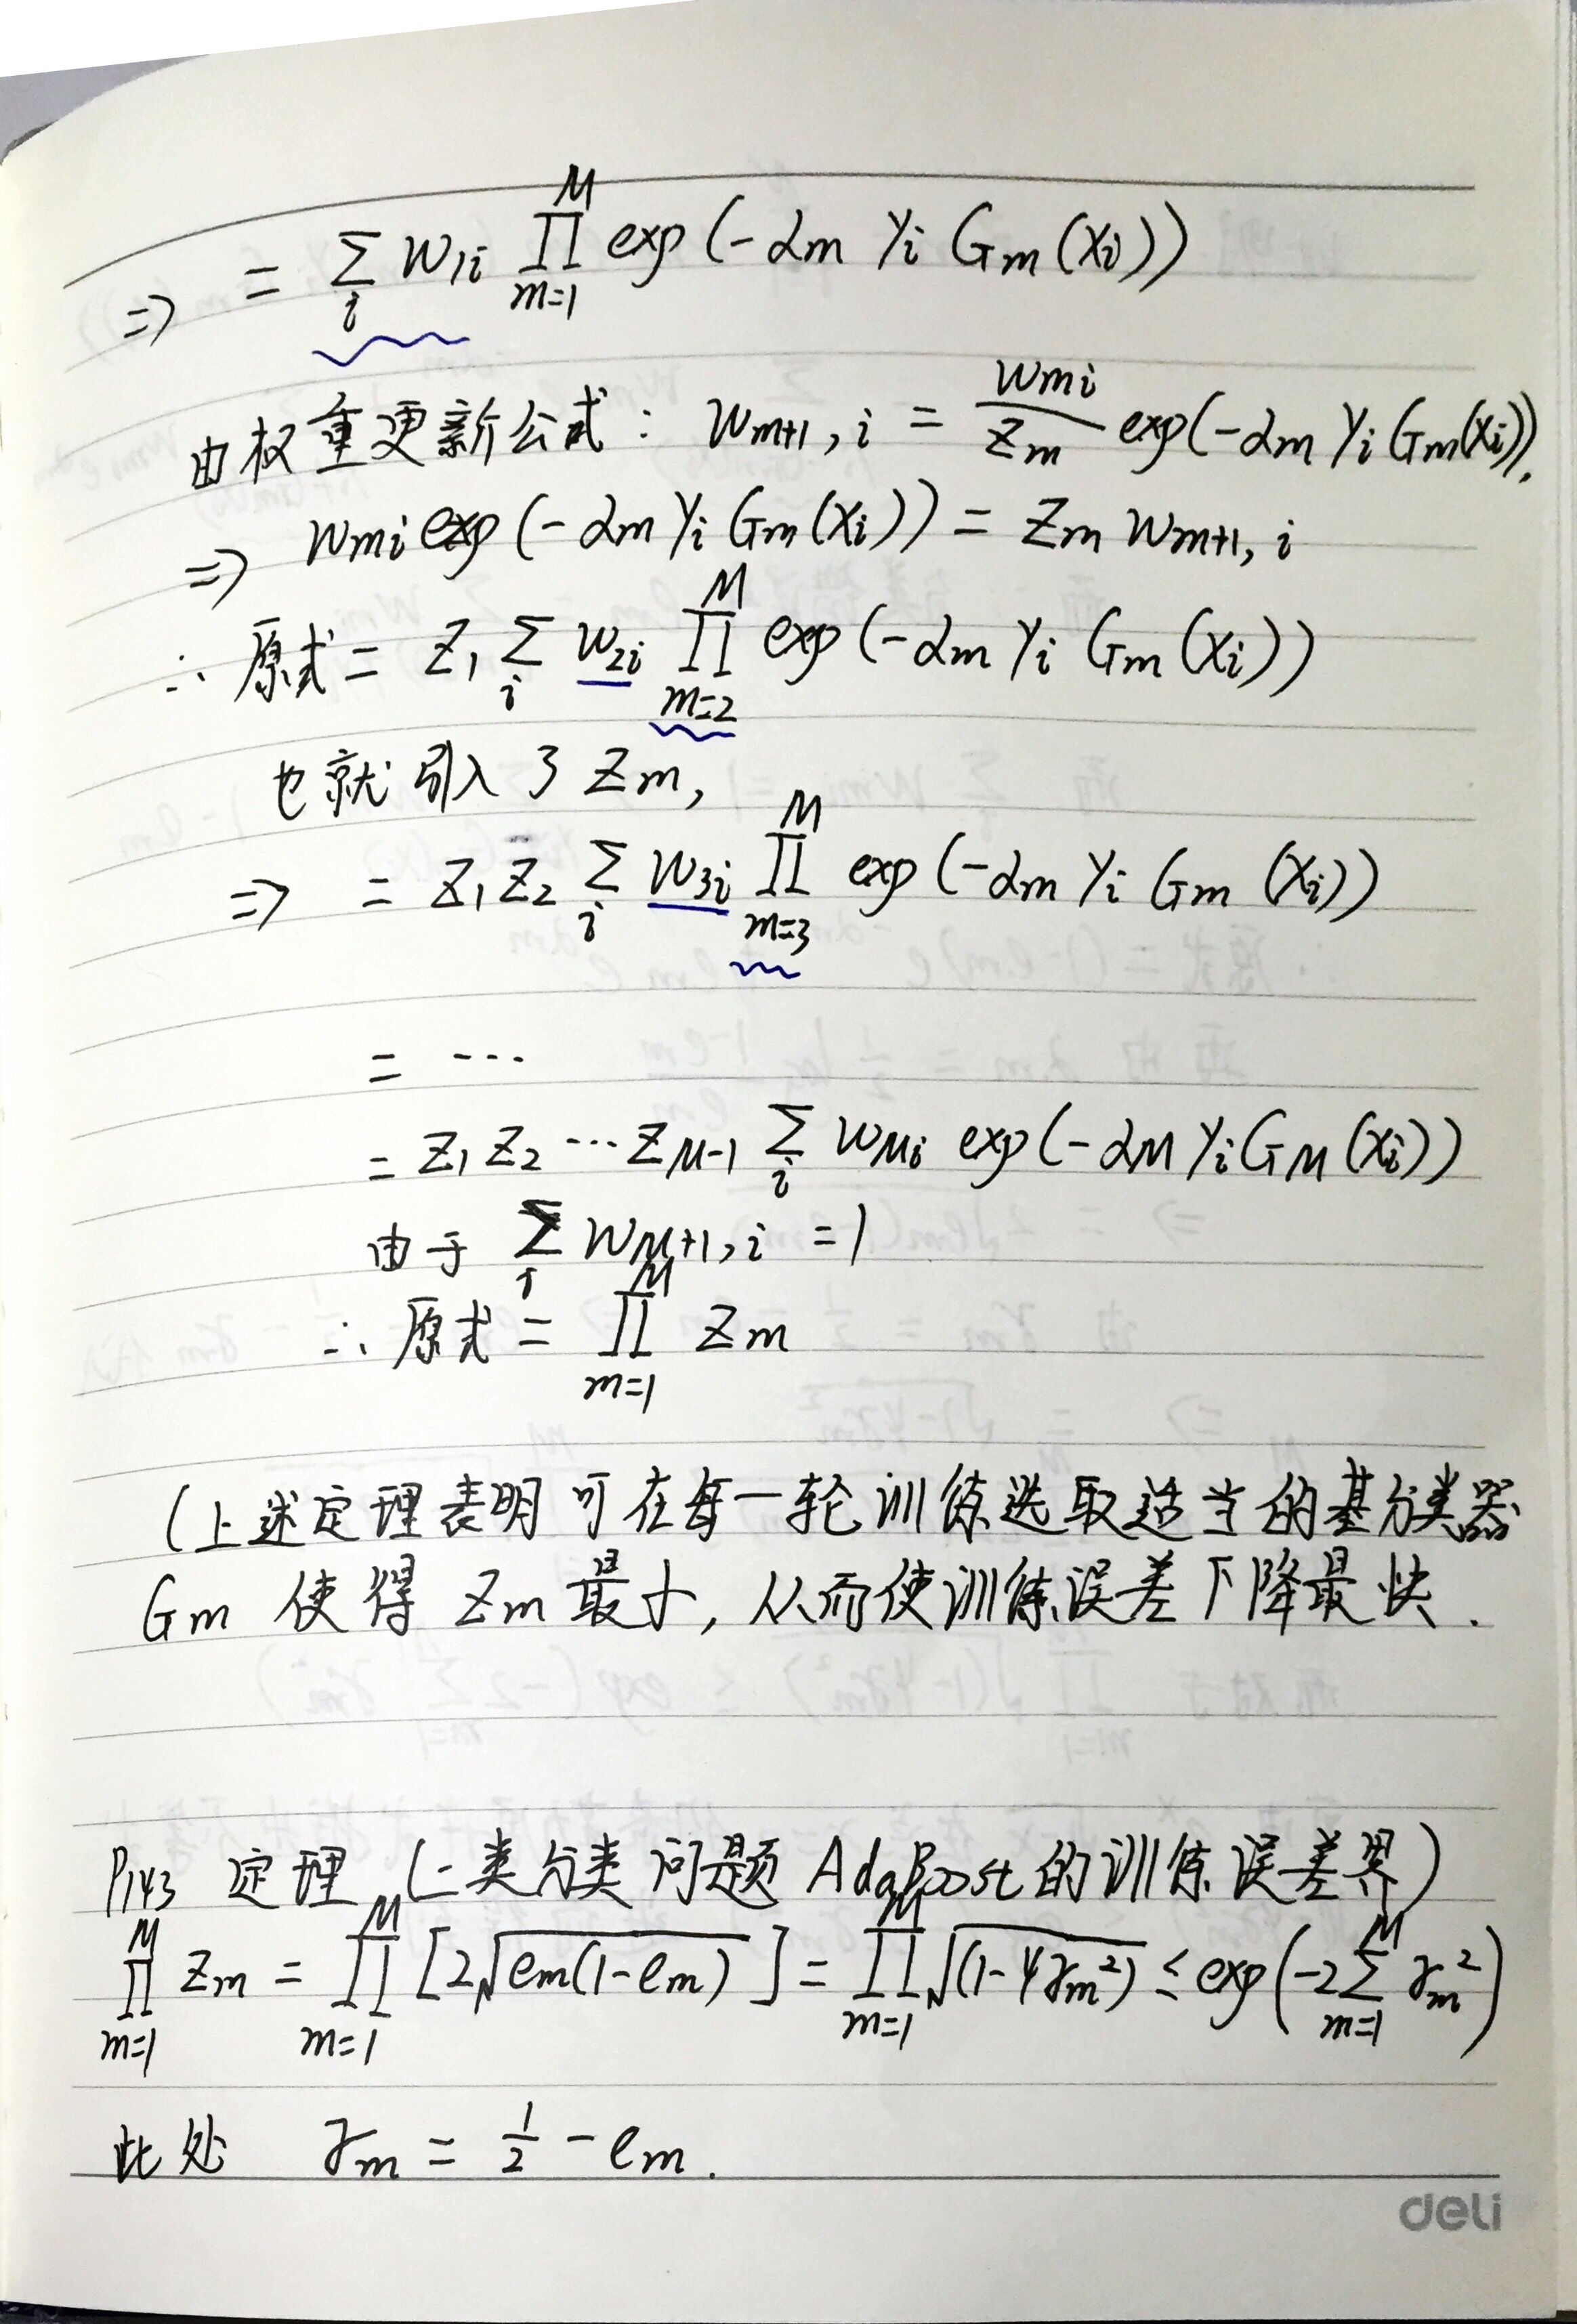 ⇒ = ∑_i w_{1i} ∏_{m=1}^{M} exp(-α_m y_i G_m(x_i))
由权重更新公式: w_{m+1,i} = \frac{w_{mi}}{Z_m} exp(-α_m y_i G_m(x_i)).
⇒ w_{mi} exp(-α_m y_i G_m(x_i)) = Z_m w_{m+1,i}
∴ 原式 = Z_1 ∑_i w_{2i} ∏_{m=2}^{M} exp(-α_m y_i G_m(x_i))
也就引入了 Z_m,
⇒ = Z_1 Z_2 ∑_i w_{3i} ∏_{m=3}^{M} exp(-α_m y_i G_m(x_i))
= ⋯
= Z_1 Z_2 ⋯ Z_{M-1} ∑_i w_{Mi} exp(-α_M y_i G_M(x_i))
由于 ∑_i w_{M+1,i} = 1
∴ 原式 = ∏_{m=1}^{M} Z_m
(上述定理表明可在每一轮训练选取适当的基分类器
G_m 使得 Z_m 最小, 从而使训练误差下降最快.
P143 定理 (二类分类问题 AdaBoost 的训练误差界)
∏_{m=1}^{M} Z_m = ∏_{m=1}^{M} [2√{e_m(1-e_m)}] = ∏_{m=1}^{M} √{(1-4γ_m^2)} ≤ exp(-2∑_{m=1}^{M} γ_m^2)
此处 γ_m = \frac{1}{2} - e_m.
deli